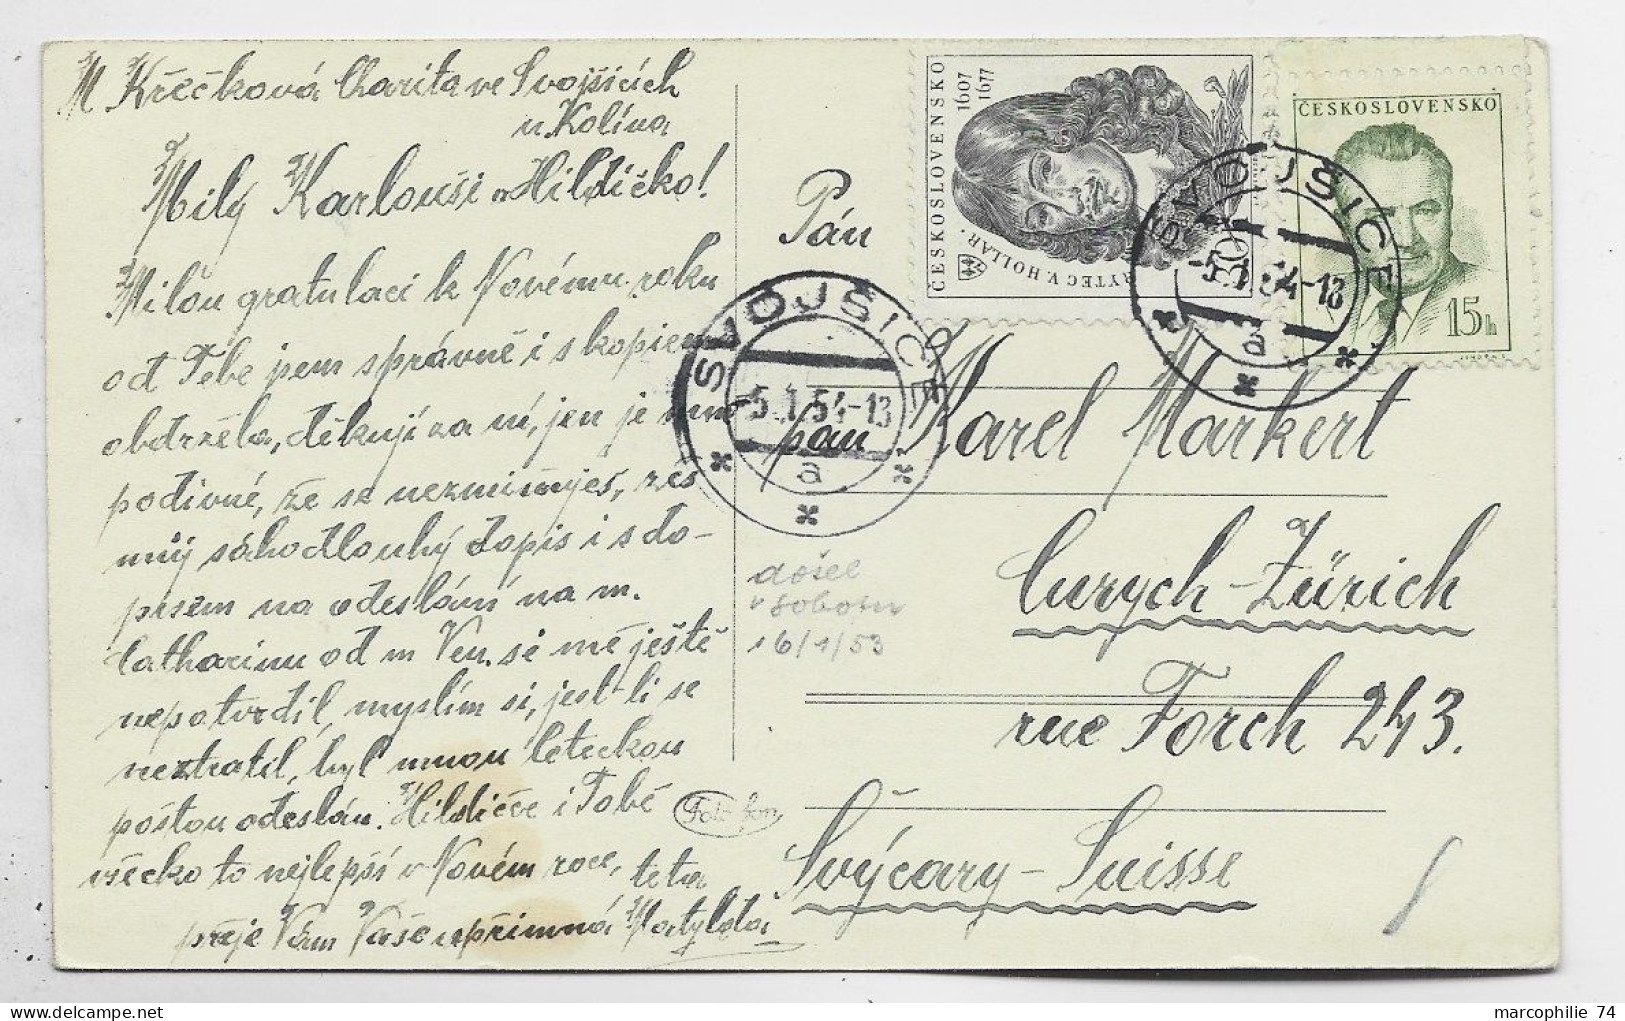 M Křečková Charita ve Svojšicích
u Kolína
Milý Karlouši a Hildičko!
Milou gratulaci k Novému roku
od Tebe jsem správně i s kopiem
obdržela, děkuji za ní, jen je mně
podivné, že se nezmiňuješ, žes
můj sáhodlouhý dopis i s do-
pisem na odeslání na m.
Catharinu od m Ven. si mě ještě
nepotvrdil, myslím si, jest-li se
neztratil, byl mnou leteckou
poštou odeslán. Hildičce i Tobě
všecko to nejlepší v Novém roce,
přeje Vám Vaše upřímná teta Matylda
Pán
pan Karel Markert
Curych-Zürich
rue Forch 243.
Švýcary-Suisse
došel
v sobotu
16/1/53
ČESKOSLOVENSKO
1607
1677
RYTEC V. HOLLAR.
ČESKOSLOVENSKO
15h
SVOJŠICE
-5.1.54-13
a
SVOJŠICE
-5.1.54-13
a
marcophilie 74